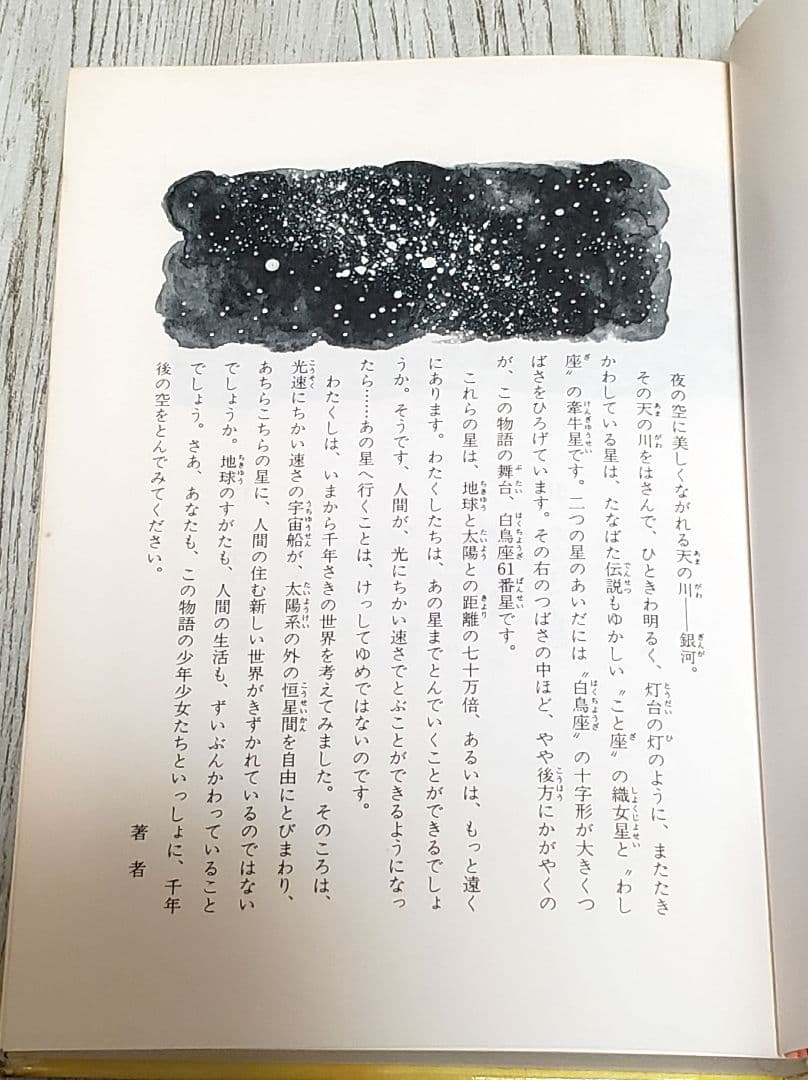 夜の空に美しくながれる天の川――銀河。
その天の川をはさんで、ひときわ明るく、灯台の灯のように、またたき
かわしている星は、たなばた伝説もゆかしい〝こと座〟の織女星と〝わし
座〟の牽牛星です。二つの星のあいだには〝白鳥座〟の十字形が大きくつ
ばさをひろげています。その右のつばさの中ほど、やや後方にかがやくの
が、この物語の舞台、白鳥座61番星です。
これらの星は、地球と太陽との距離の七十万倍、あるいは、もっと遠く
にあります。わたくしたちは、あの星までとんでいくことができるでしょ
うか。そうです、人間が、光にちかい速さでとぶことができるようになっ
たら……あの星へ行くことは、けっしてゆめではないのです。
わたくしは、いまから千年さきの世界を考えてみました。そのころは、
光速にちかい速さの宇宙船が、太陽系の外の恒星間を自由にとびまわり、
あちらこちらの星に、人間の住む新しい世界がきずかれているのではない
でしょうか。地球のすがたも、人間の生活も、ずいぶんかわっていること
でしょう。さあ、あなたも、この物語の少年少女たちといっしょに、千年
後の空をとんでみてください。
著者